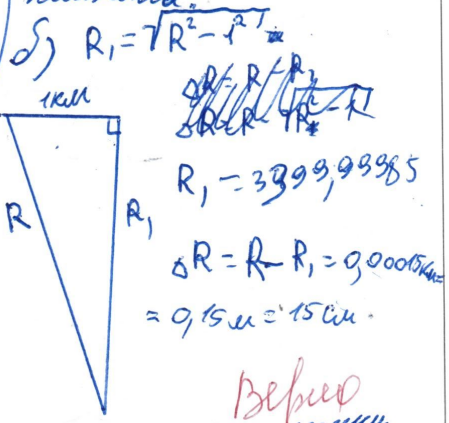 б) R₁ = √R² − 1²
1км
R₁ = 3399,99985
R
R₁
ΔR = R − R₁ = 0,00015км =
= 0,15м = 15 см.
Верно